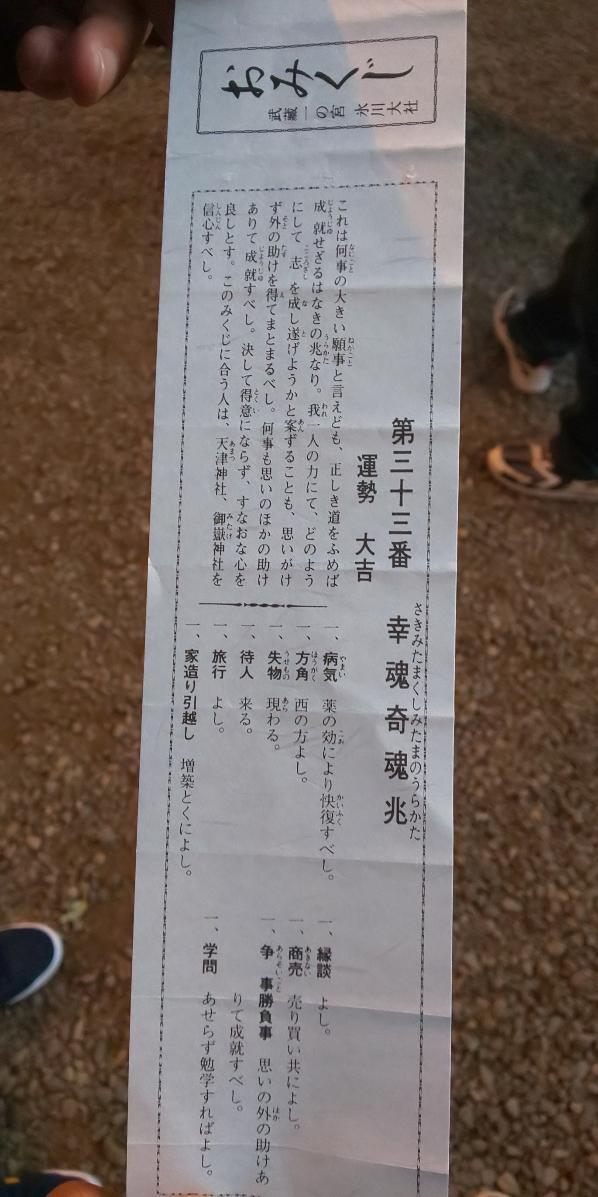 おみくじ
武蔵一の宮 氷川大社
第三十三番 幸魂奇魂兆
さきみたまくしみたまのうらかた
運勢 大吉
これは何事の大きい願事と言えども、正しき道をふめば
成就せざるはなきの兆なり。我一人の力にて、どのよう
にして志を成し遂げようかと案ずることも、思いがけ
ず外の助けを得てまとまるべし。何事も思いのほかの助け
ありて成就すべし。決して得意にならず、すなおな心を
良しとす。このみくじに合う人は、天津神社、御嶽神社を
信心すべし。
一、病気 薬の効により快復すべし。
一、方角 西の方よし。
一、失物 現わる。
一、待人 来る。
一、旅行 よし。
一、家造り引越し 増築とくによし。
一、縁談 よし。
一、商売 売り買い共によし。
一、争事勝負事 思いの外の助けあ
りて成就すべし。
一、学問 あせらず勉学すればよし。